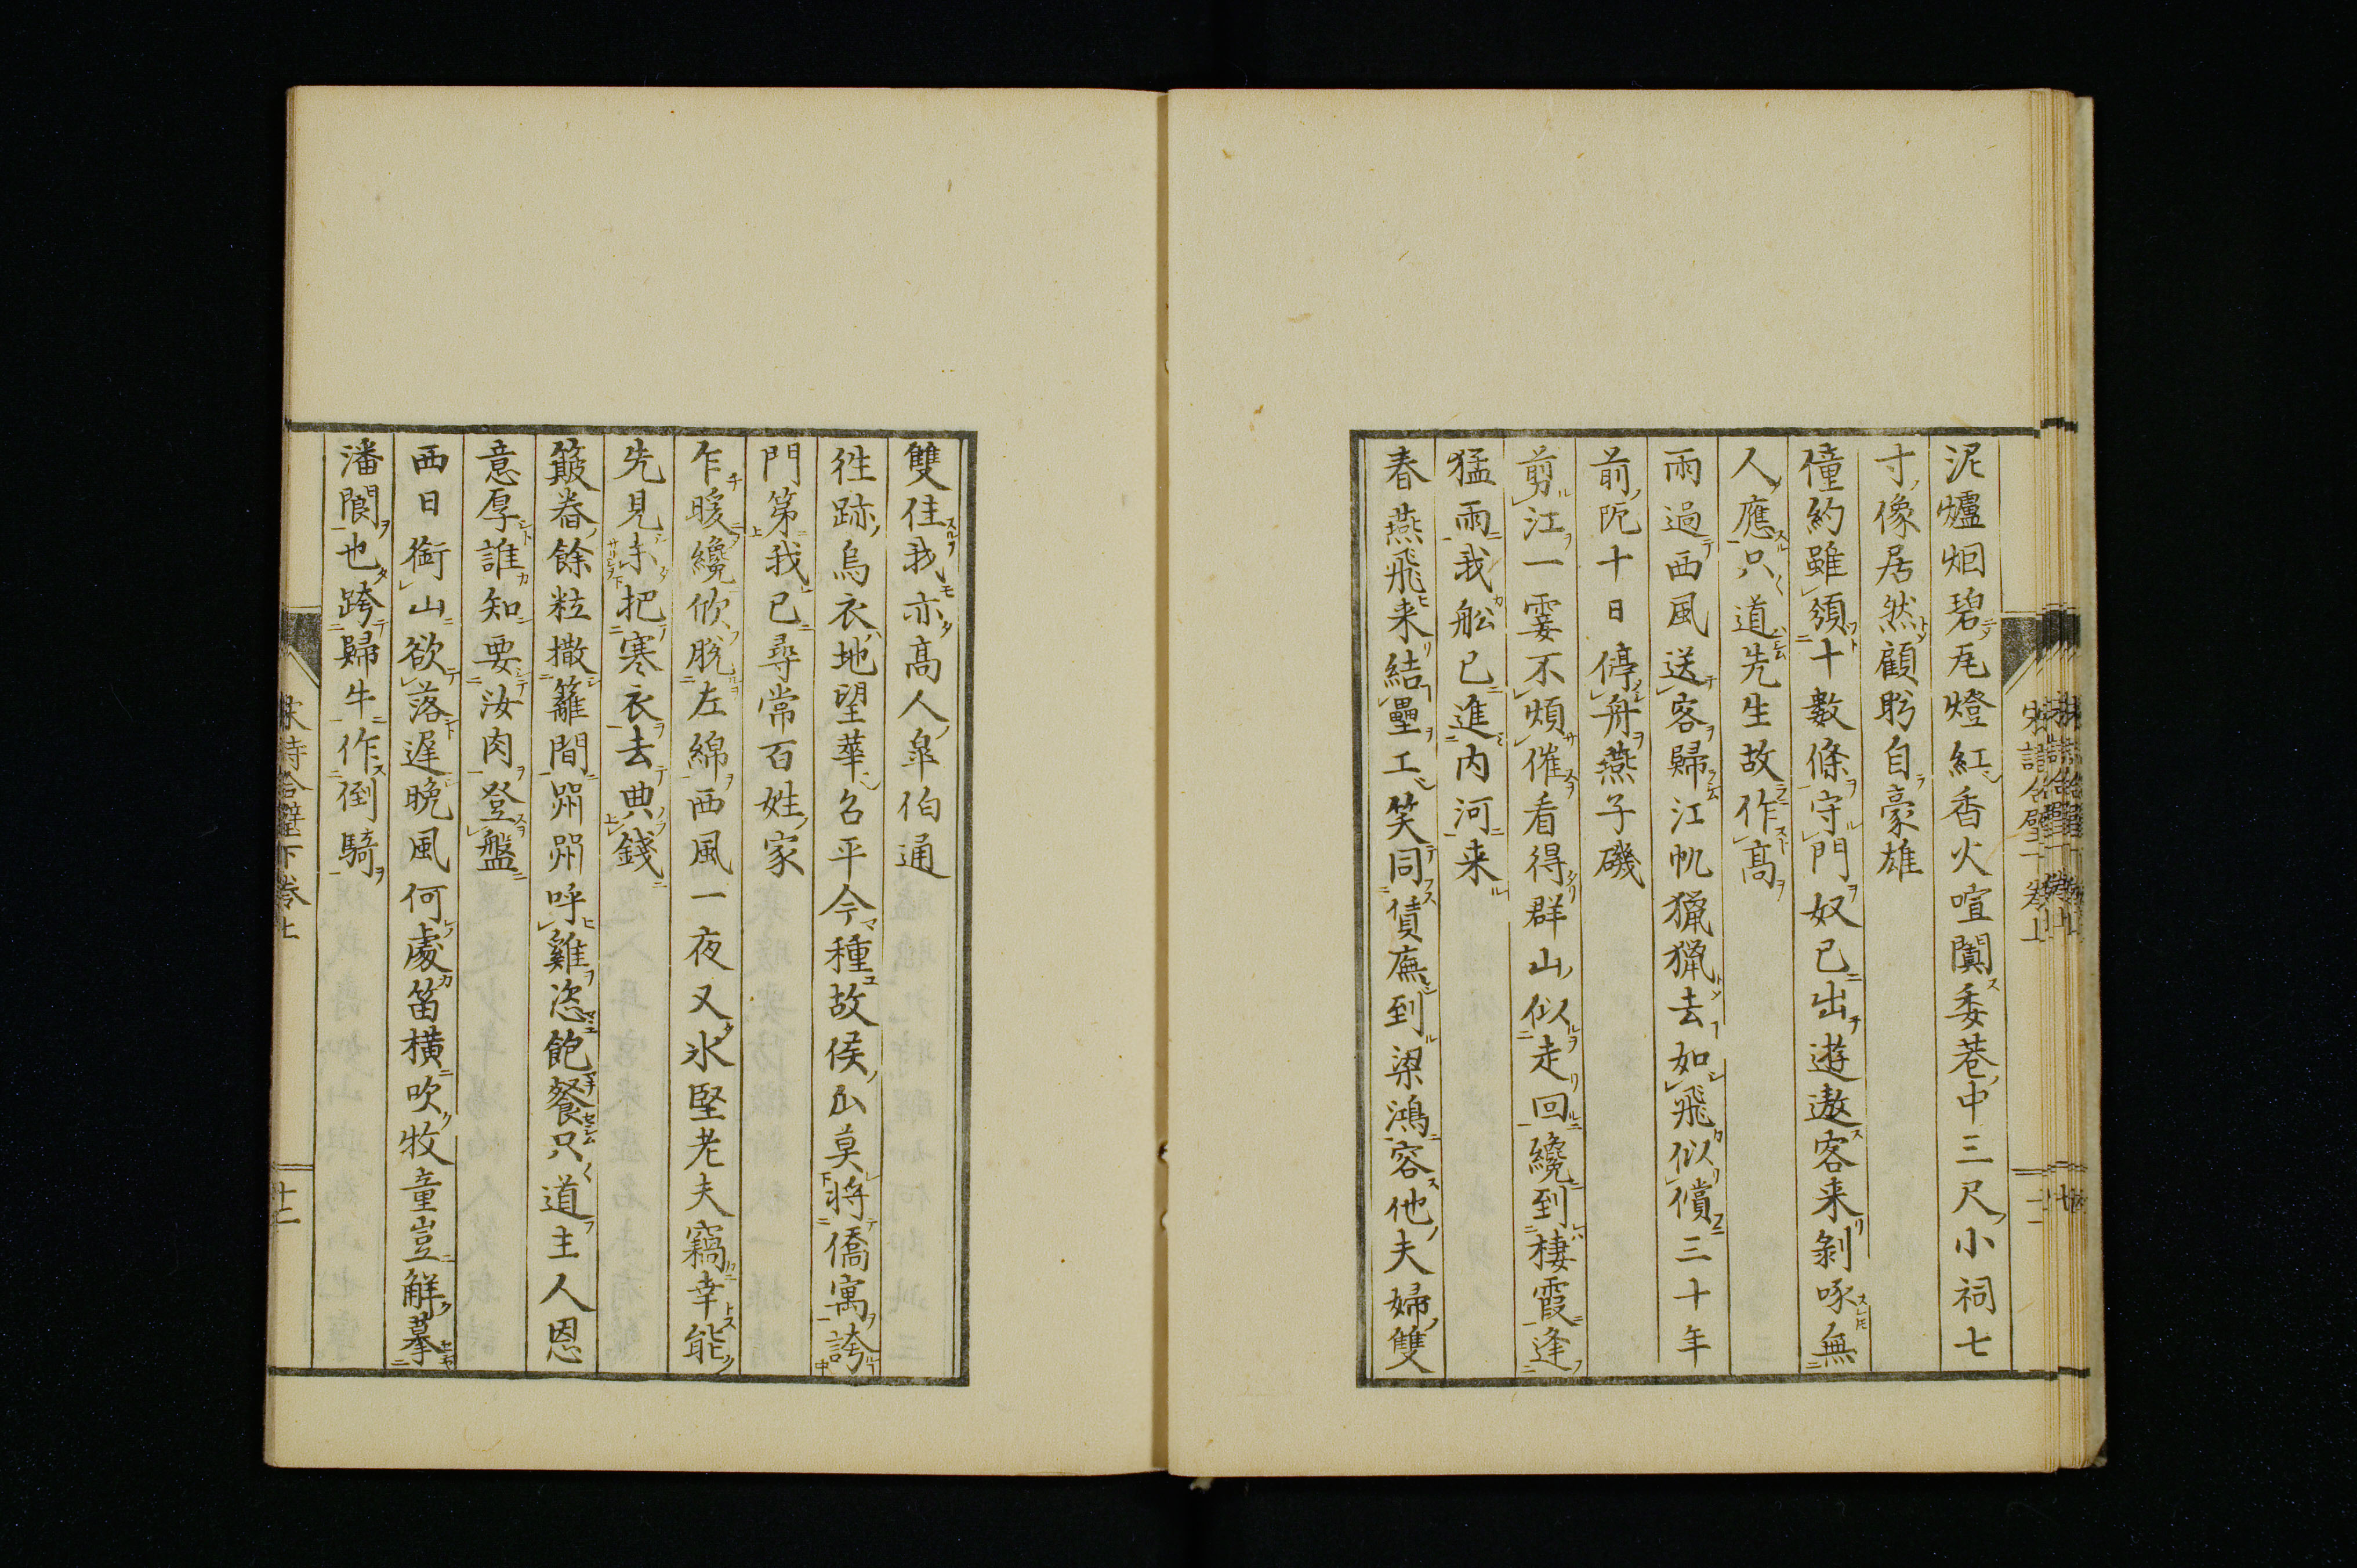 泥爐烟碧瓦燈紅香火喧闐委巷中三尺小祠七
寸像居然顧盻自豪雄
僮約雖頒十數條守門奴已出遊遨客来剝啄無
人應只道先生故作高
雨過西風送客歸江帆獵獵去如飛似償三十年
前阨十日停舟燕子磯
剪江一霎不煩催看得群山似走回纔到棲霞逢
猛雨我舩已進内河来
春燕飛来結壘工笑同賃廡到梁鴻容他夫婦雙
雙住我亦高人皐伯通
徃跡烏衣地望華召平今種故侯瓜莫將僑寓誇
門第我已尋常百姓家
乍暖纔欣脫左綿西風一夜又氷堅老夫竊幸能
先見未把寒衣去典錢
簸畚餘粒撒籬間喌喌呼雞恣飽餐只道主人恩
意厚誰知要汝肉登盤
西日銜山欲落遲晩風何處笛橫吹牧童豈解摹
潘閬也跨歸牛作倒騎
宋詩合璧下卷上
十二